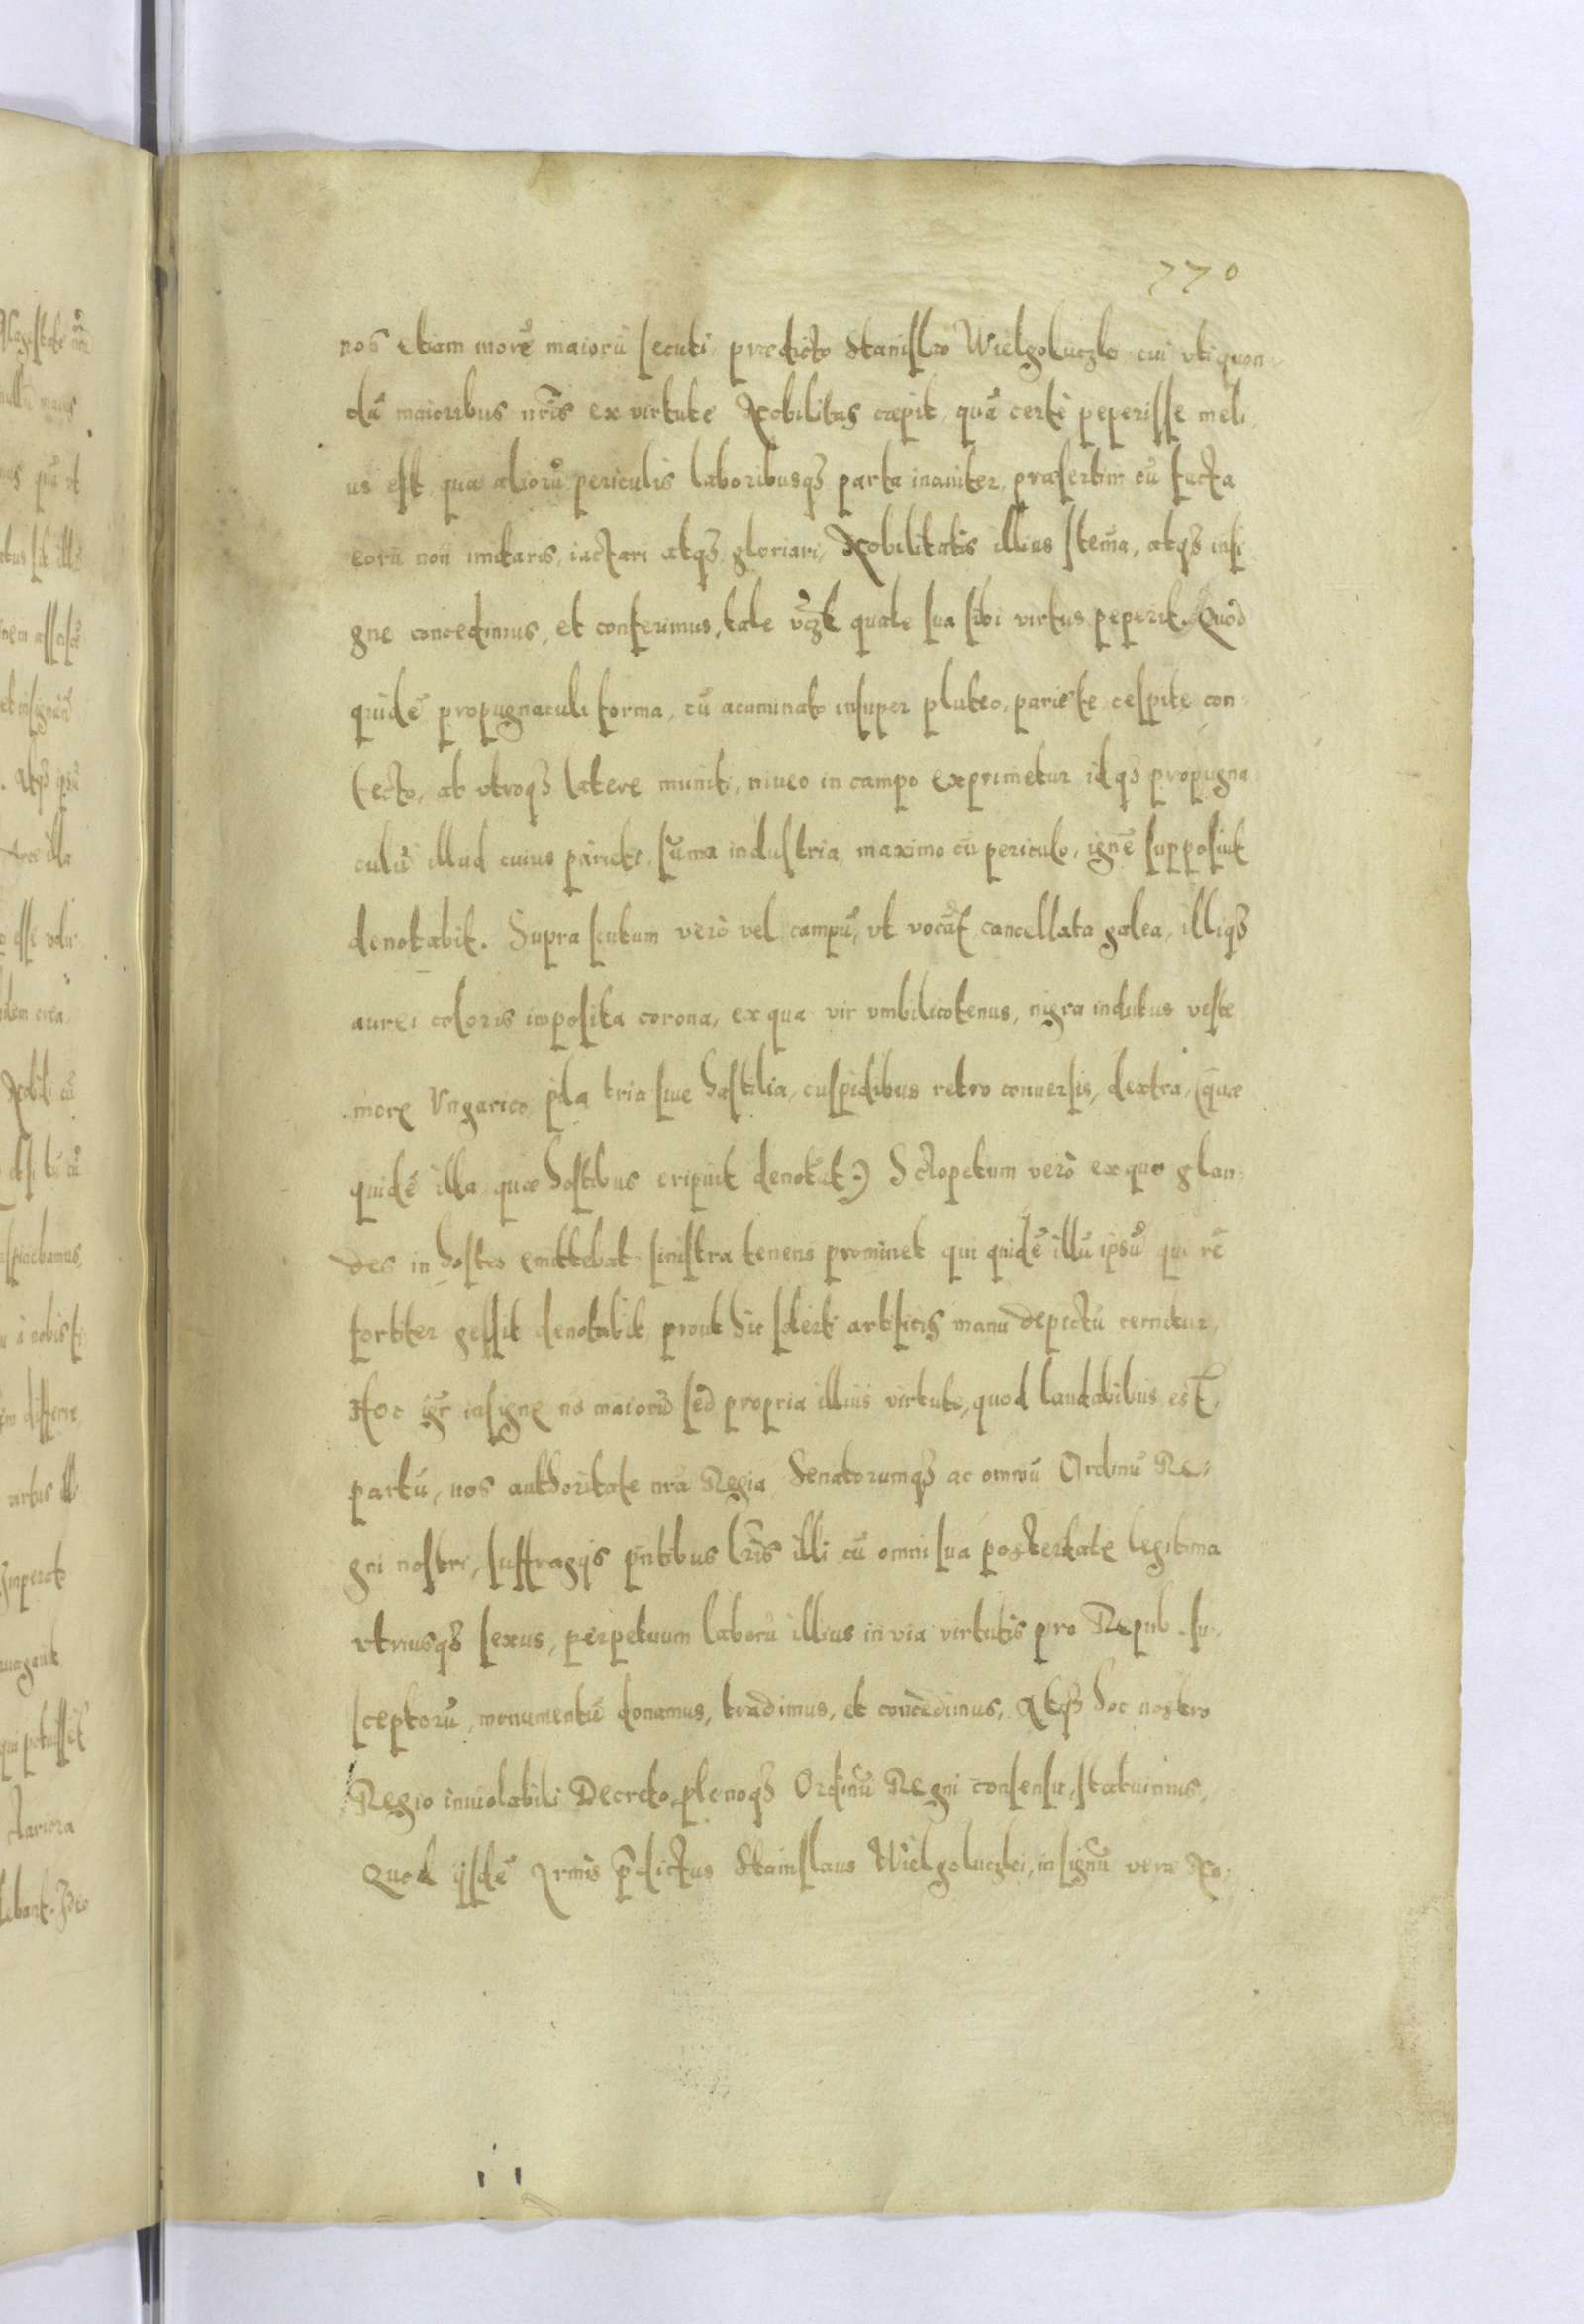 770
nos etiam morē maiorū secuti, prædicto Stanislao Wielgoluczko cui vti quon-
dā maioribus nr̃is ex virtute Nobilitas cœpit, quā certè peperisse meli-
us est, quā aliorū periculis laboribusq3 parta inaniter, præsertim cū facta
eorū non imitaris, iactari atq3 gloriari, Nobilitatis illius stem̄a, atq3 insi-
gne concedimus, et conferimus, tale vcz̃t quale sua sibi virtus peperit. Quod
quidē propugnaculi forma, cū acuminato insuper pluteo, pariete cespite con-
tecto, ab vtroq3 latere muniti, niueo in campo exprimetur idq3 propugna-
culū illud cuius parieti, sūma industria, maximo cū periculo, ignē supposuit
denotabit. Supra scutum verò vel campū, vt vocāt, cancellata galea, illiq3
aurei coloris imposita corona, ex qua vir vmbilicotenus, nigra indutus veste
more Vngarico pila tria siue hastilia, cuspidibus retro conuersis, dextra, (quæ
quidē illa quæ hostibus eripuit denotāt) Sclopetum verò ex quo glan-
des in hostes emittebat sinistra tenens prominet qui quidē illū ipsū qui rē
fortiter gessit denotabit, prout hic solerti artificis manu depictū cernitur,
Hoc igr̃ insigne nō maiorū sed propria illius virtute, quod laudabilius est,
partū, nos authoritate nr̃a Regia Senatorumq3 ac omniū Ordinū Re-
gni nostri, suffragijs pñtibus lr̃is illi cū omni sua posteritate legitima
vtriusq3 sexus, perpetuum laborū illius in via virtutis pro Repub. su-
sceptorū, monumentū donamus, tradimus, et concedimus, Atq3 hoc nostro
Regio inuiolabili Decreto, plenoq3 Ordinū Regni consensu, statuimus,
Quod ijsdē Armis p̄dictus Stanislaus Wielgoluczki, in signū veræ No-